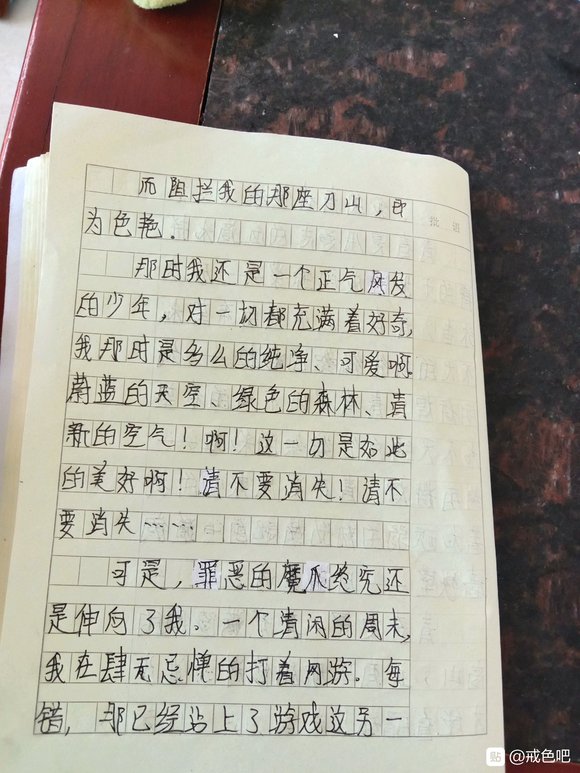 而阻拦我的那座刀山，即
为色艳.
批 语
那时我还是一个正气风发
的少年，对一切都充满着好奇，
我那时是多么的纯净、可爱啊
蔚蓝的天空、绿色的森林、清
新的空气！啊！这一切是如此
的美好啊！请不要消失！请不
要消失……
可是，罪恶的魔爪终究还
是伸向了我。一个清闲的周末，
我在肆无忌惮的打着网游。每
错，那已经沾上了游戏这另一
贴 @戒色吧